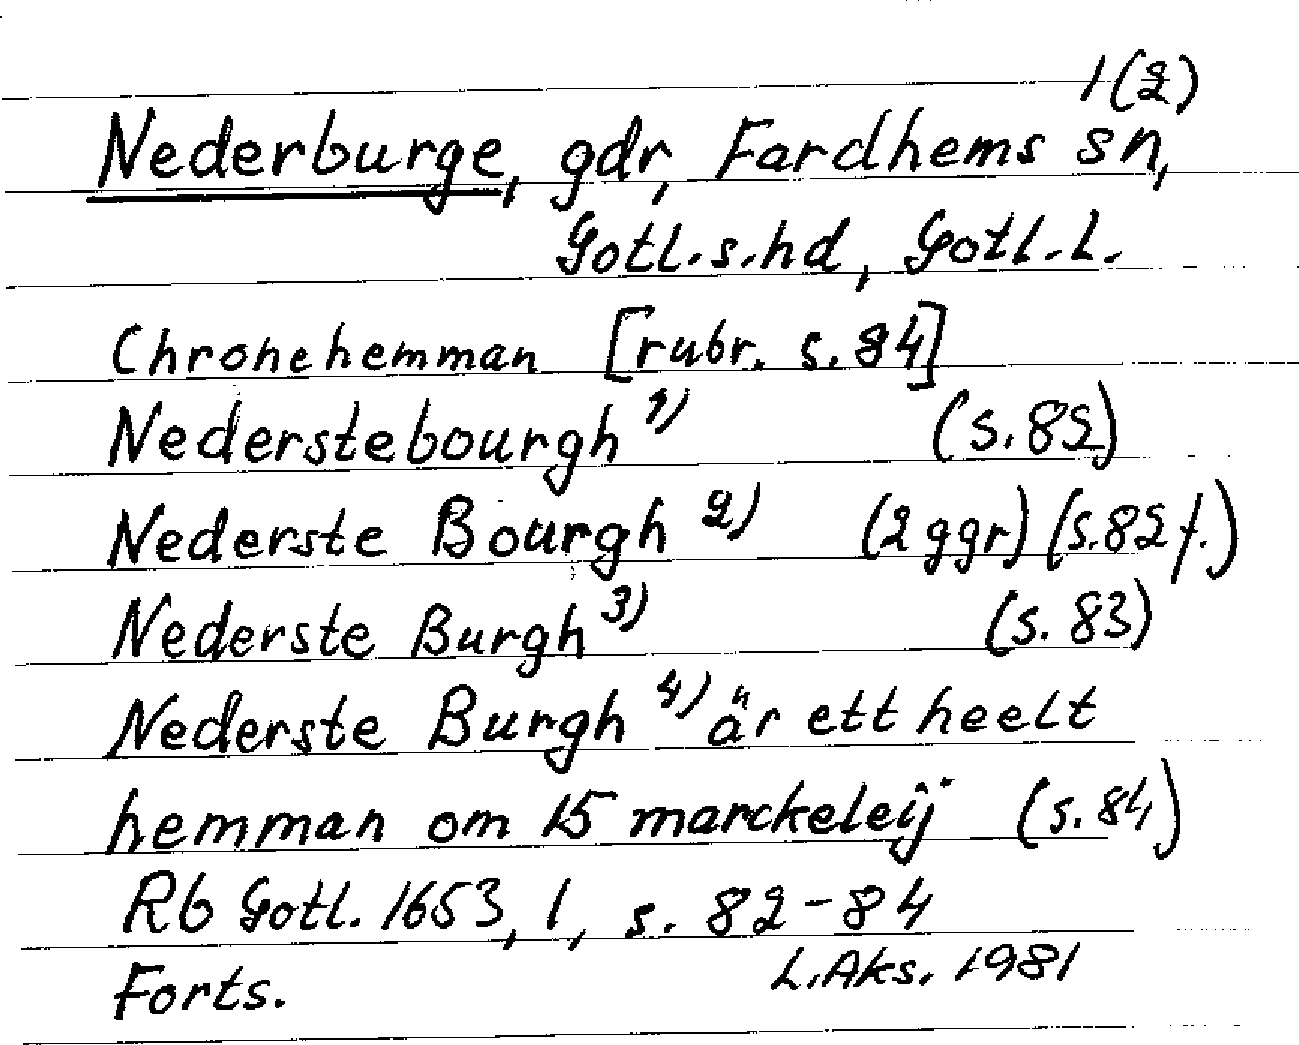 1(2)
Nederburge, gdr, Fardhems sn,
Gotl.s.hd, Gotl.l.
Chronehemman [rubr. s. 84]
Nederstebourgh 1) (s. 82)
Nederste Bourgh 2) (2 ggr) (s. 82 f.)
Nederste Burgh 3) (s. 83)
Nederste Burgh 4) är ett heelt
hemman om 15 marckeleij (s. 84)
Rb Gotl. 1653, 1, s. 82-84
L. Aks. 1981
Forts.